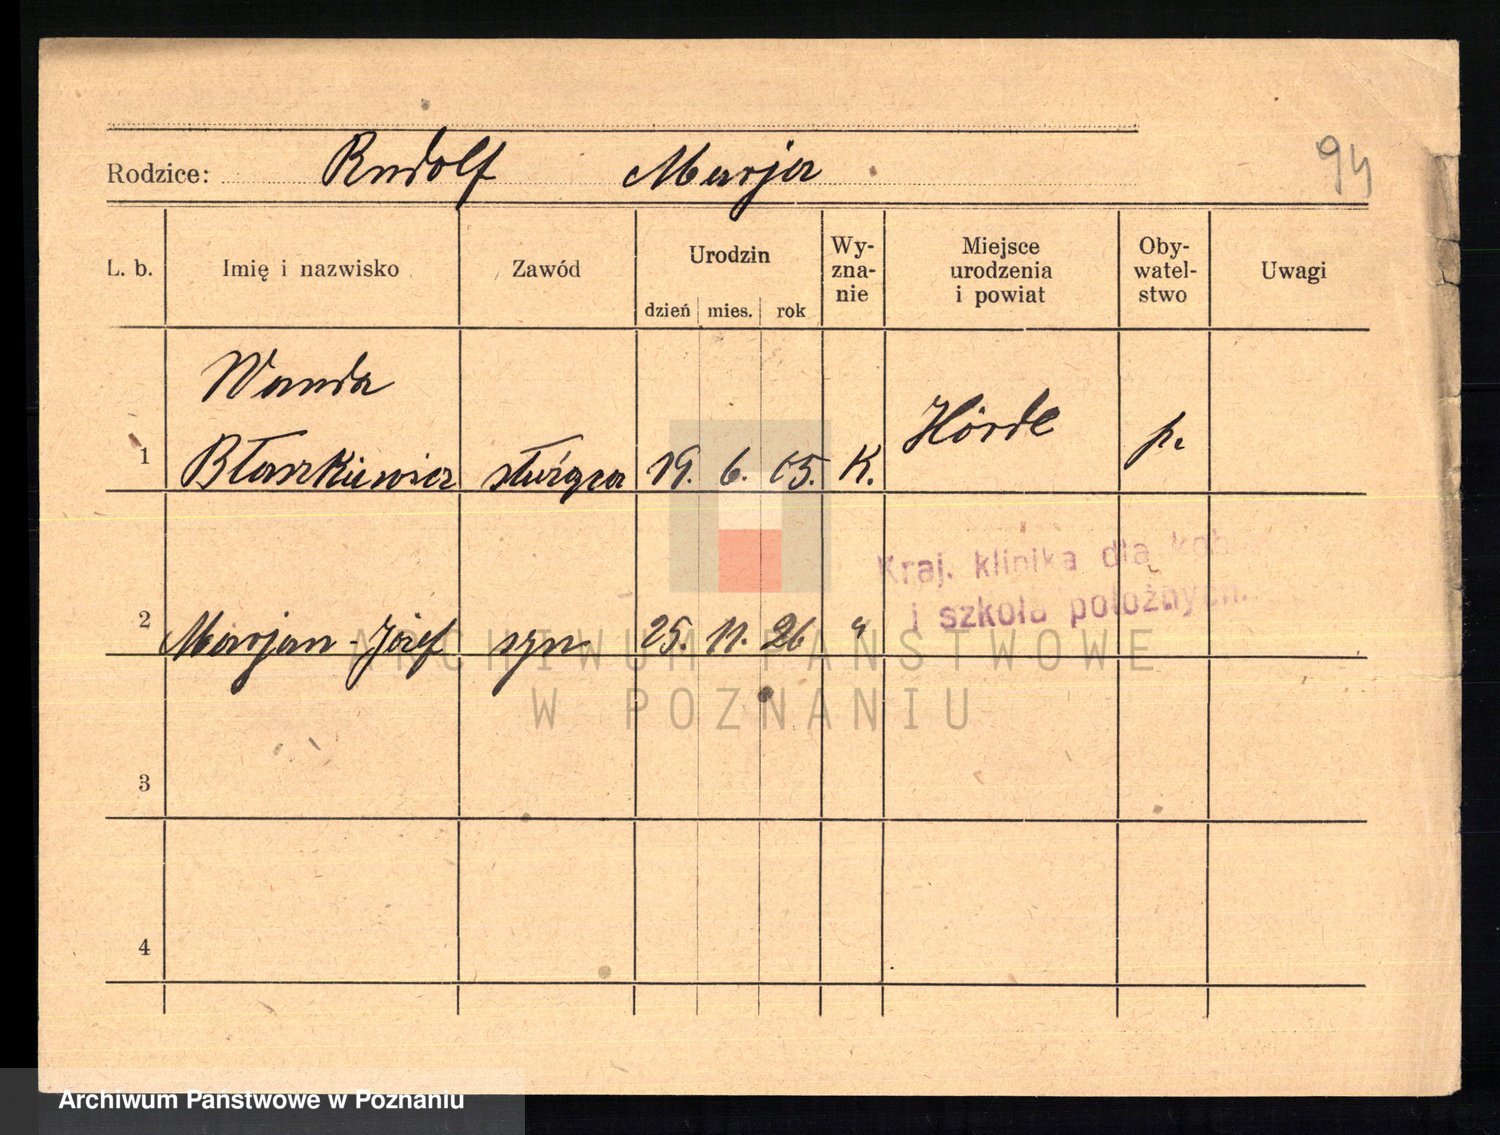 Rodzice: Rudolf Marja
94
L. b. Imię i nazwisko Zawód Urodzin dzień mies. rok Wy-zna-nie Miejsce urodzenia i powiat Oby-watel-stwo Uwagi
Wanda
1 Błaszkiewicz służąca 19. 6. 05. K. Hörde p.
Kraj. klinika dla kobiet
i szkoła położnych
2 Marjan-Józef syn 25. 11. 26 "
ARCHIWUM PAŃSTWOWE
W POZNANIU
3
4
Archiwum Państwowe w Poznaniu